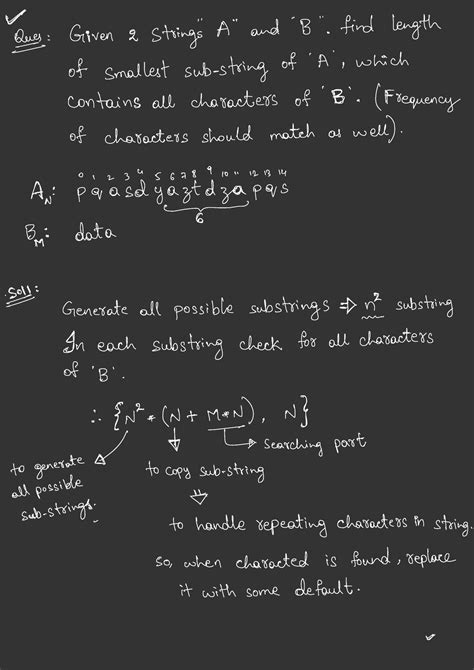 Ques: Given 2 Strings "A" and "B". find length
of smallest sub-string of 'A', which
contains all characters of 'B'. (Frequency
of characters should match as well).
0 1 2 3 4 5 6 7 8 9 10 11 12 13 14
A_N: p q a s d y a z t d z a p q s
6
B_M: data
Sol1:
Generate all possible substrings ⇒ n² substring
In each substring check for all characters
of 'B'.
∴ {N² * (N + M*N), N}
searching part
to generate all possible sub-strings.
to copy sub-string
to handle repeating characters in string.
so, when characted is found, replace
it with some default.